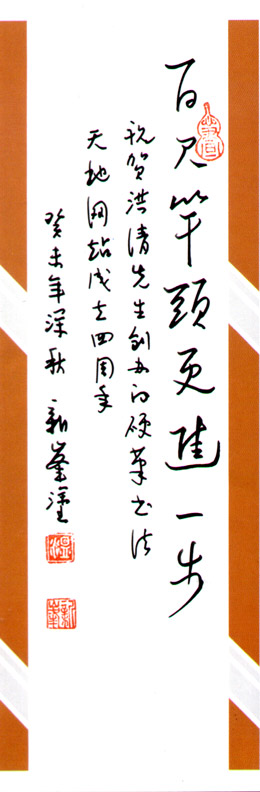 百尺竿頭更進一步
祝贺洪清先生创办的硬笔书法
天地网站成立四周年
癸未年深秋 新峯